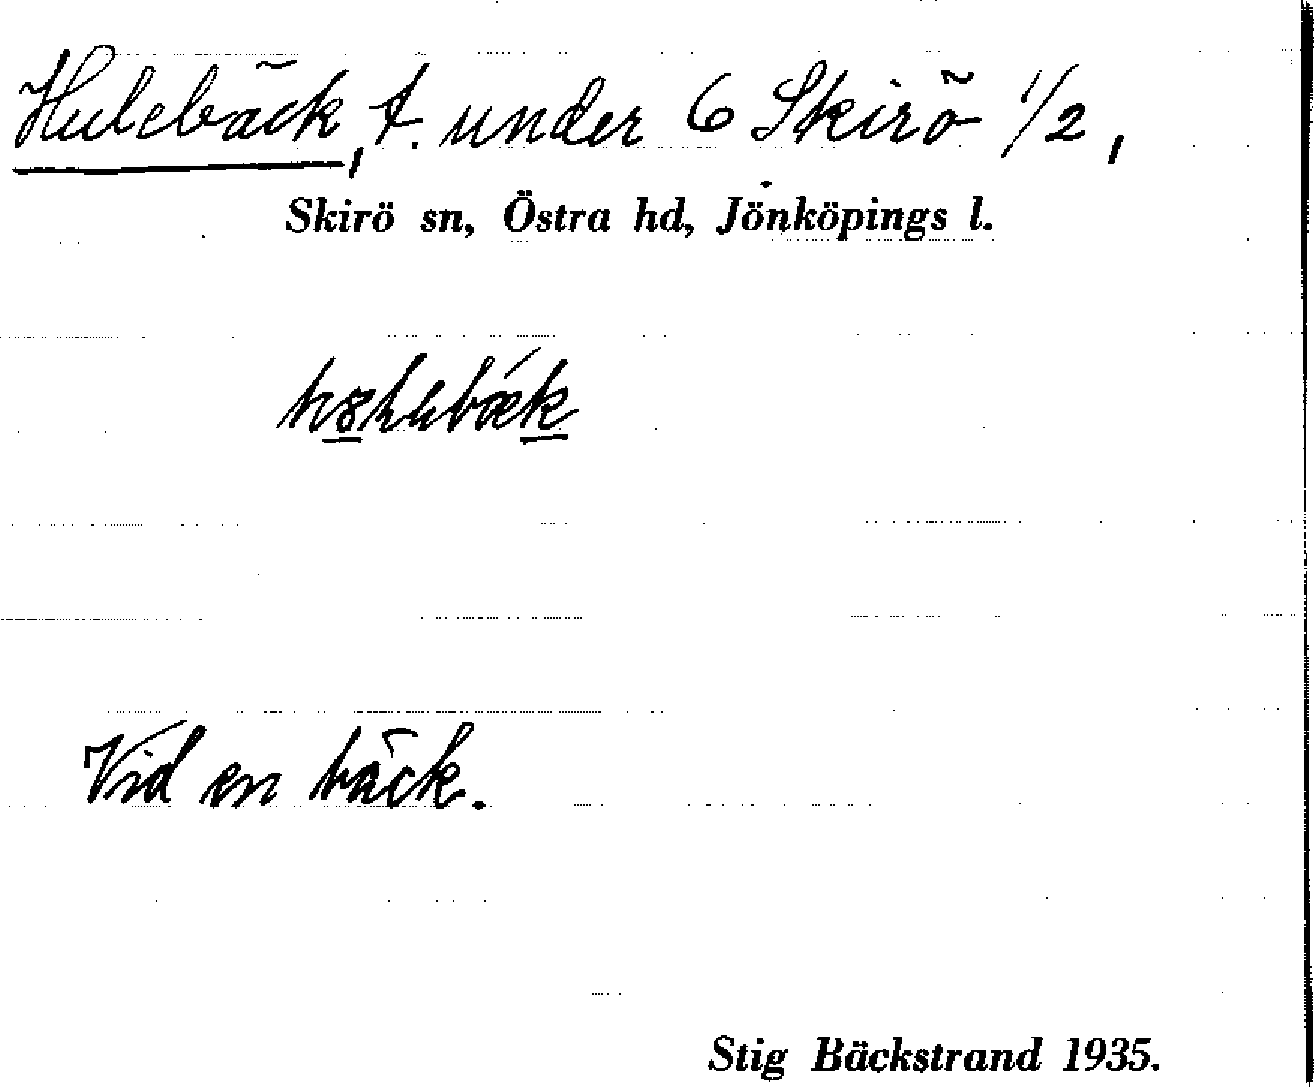 Hulebäck, t. under 6 Skirö 1/2,
Skirö sn, Östra hd, Jönköpings l.
Vid en bäck.
Stig Bäckstrand 1935.